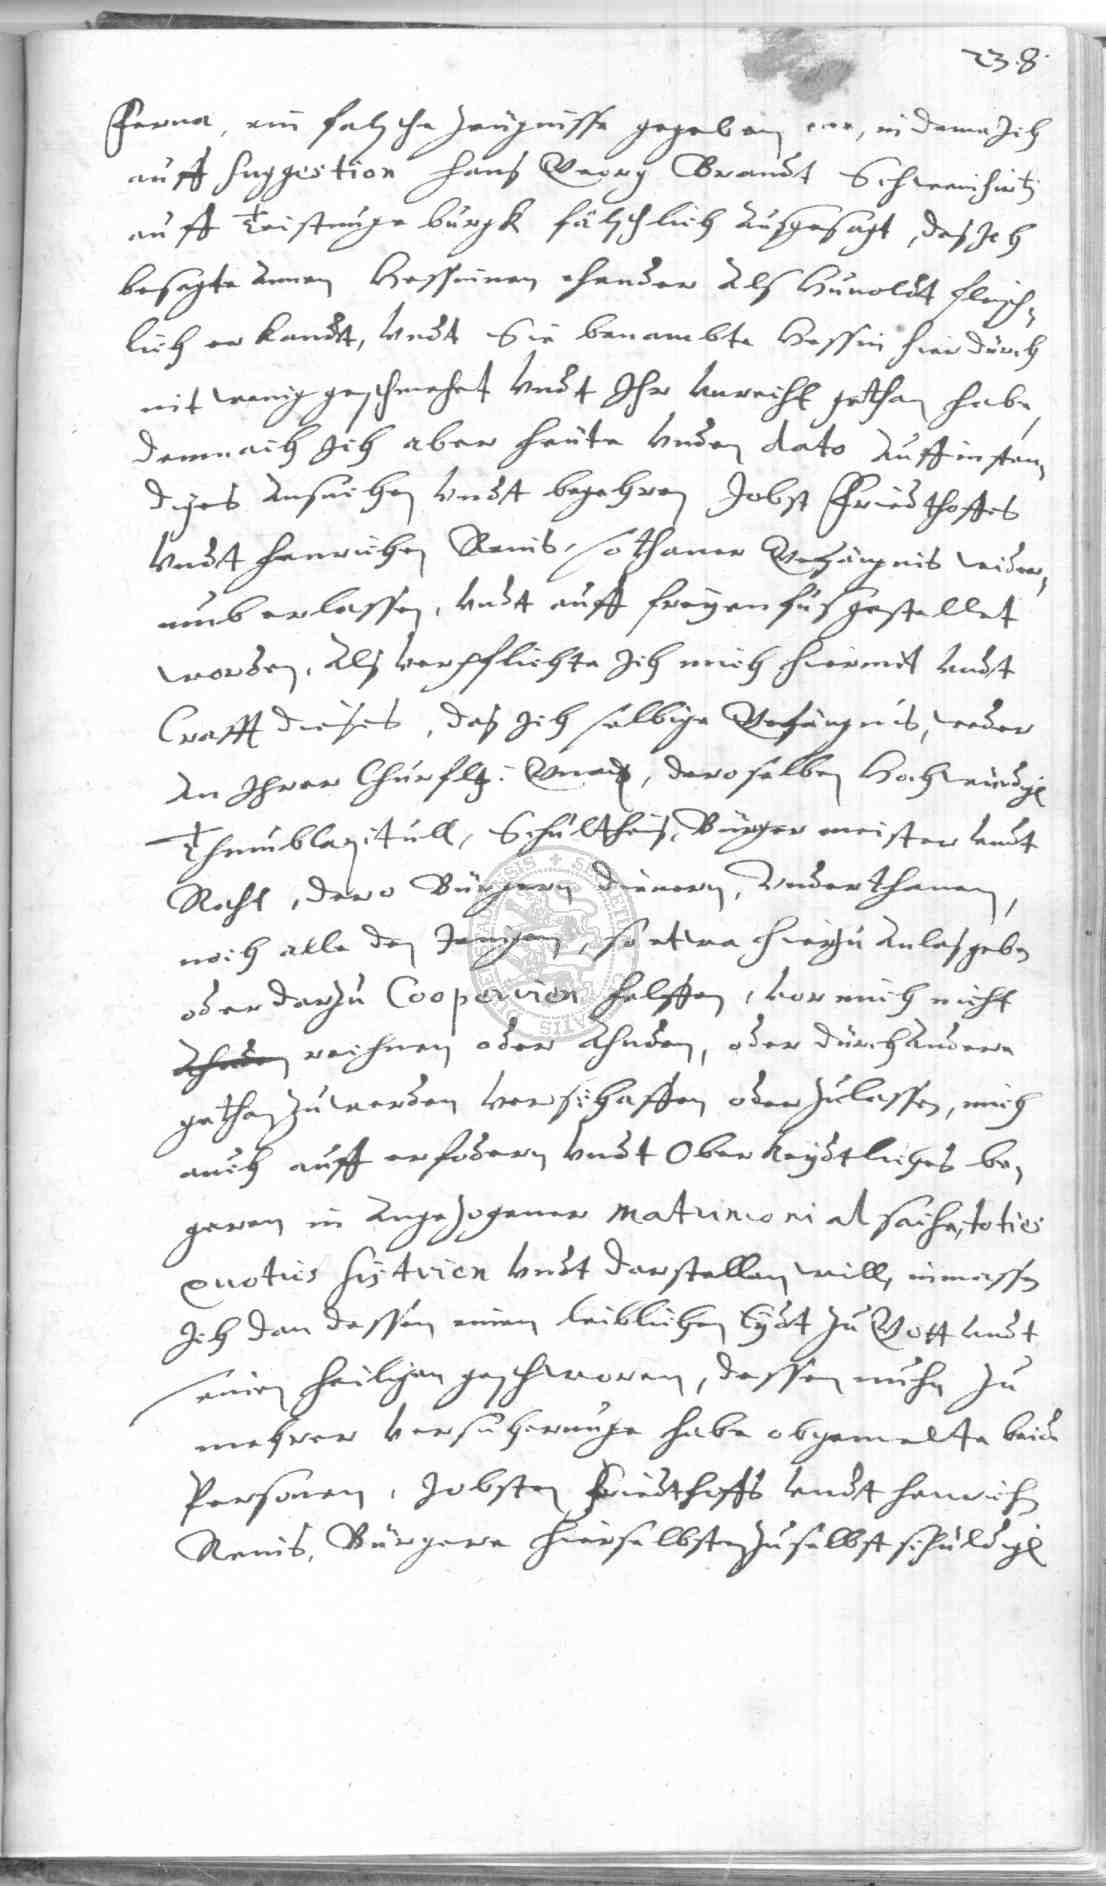 238.
Ferna, ein falsche Zeugnisse gegeben, in deme Ich
auff suggestion Hans Georg Brandt Schweinhirtt
auff Teistungeburgk fälschlich außgesagt, daß Ich
besagte Annen Hessinnen ehender alß Hunoldt fleisch-
lich erkandt, undt Sie benambte Hessin hierdurch
nit wenig geschmehet undt Ihr unrecht gethan habe,
demnach Ich aber heute unden dato auff insten-
diges ansuchen undt begehren Jobst Friedthoffes
undt Henrichen Renis, sothaner Gefängnis wieder-
umb erlassen, undt auff freyen fus gestellet
worden, Alß verpflichte Ich mich hiermit undt
Crafft dieses, daß Ich selbige Gefängnis, weder
an Ihrer Churfl: Gnad, deroselben Hochwürdig
Thumbkapitull, Schultheis, Bürgermeister undt
Raht, dero Bürgern dienern, Underthanen,
noch alle den Jenigen, so etwa hierzu anlaß geben
oder darzu Cooperiren helffen, vor mich nicht
rechnen oder ahnden, oder durch andere
gethan zu werden verschaffen oder zulassen, mich
auch auff erfodern undt Oberkeydtliches be-
geren in angezogener matrimonial sache, toties
quoties sistiren undt darstellen will, inmassen
Ich dan dessen einen leiblichen Eydt zu Gott undt
seinen heiligen geschworen, dessen nuhn zu
mehrer versicherunge habe obgemelte beide
Personen, Jobsten Friedthoffs undt Henrich
Renis, Bürgere hierselbsten zu selbst schuldig